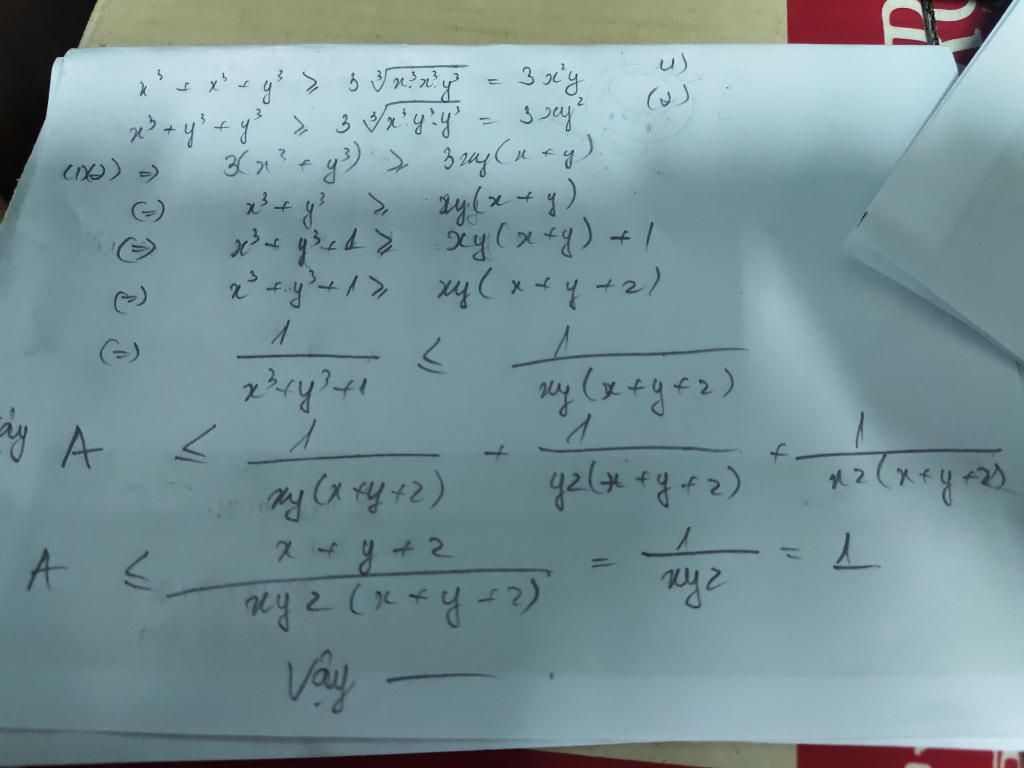 x³ + x³ + y³ ≥ 3 ∛(x³.x³.y³) = 3x²y (1)
x³ + y³ + y³ ≥ 3 ∛(x³.y³.y³) = 3xy² (2)
(1)(2) => 3(x³ + y³) ≥ 3xy(x + y)
(=) x³ + y³ ≥ xy(x + y)
(=) x³ + y³ + 1 ≥ xy(x + y) + 1
(=) x³ + y³ + 1 ≥ xy(x + y + z)
(=) 1/(x³+y³+1) ≤ 1/(xy(x+y+z))
A ≤ 1/(xy(x+y+z)) + 1/(yz(x+y+z)) + 1/(xz(x+y+z))
A ≤ (x + y + z)/(xyz(x+y+z)) = 1/(xyz) = 1
Vậy —— .